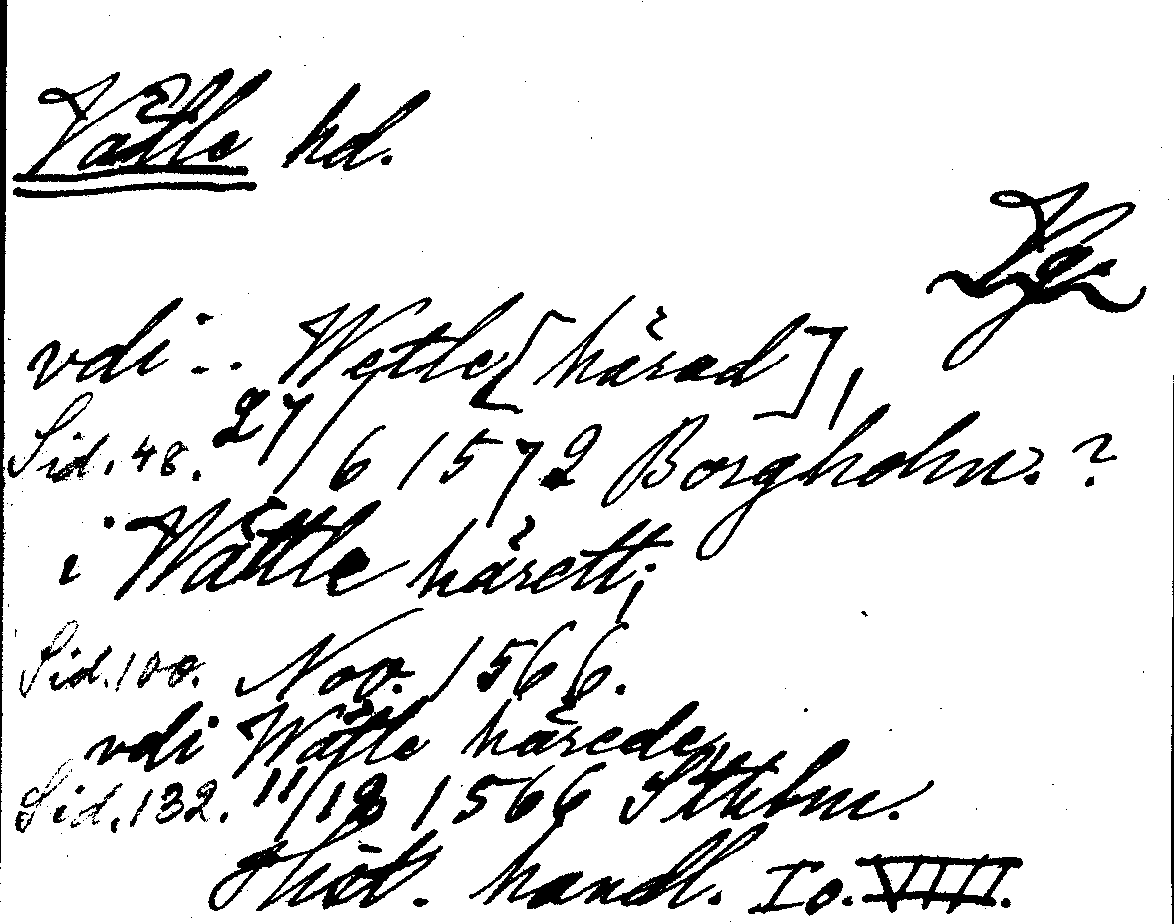 Vätle hd.
Vg.
vdi - . . Wetle [härad],
Sid. 48. 27/6 1572 Borgholm. ?
i Wättle härett;
Sid. 100. Nov. 1566.
vdi Wätle härede,
Sid. 132. 11/12 1566 Sthlm.
Hist. handl. I o. VIII.